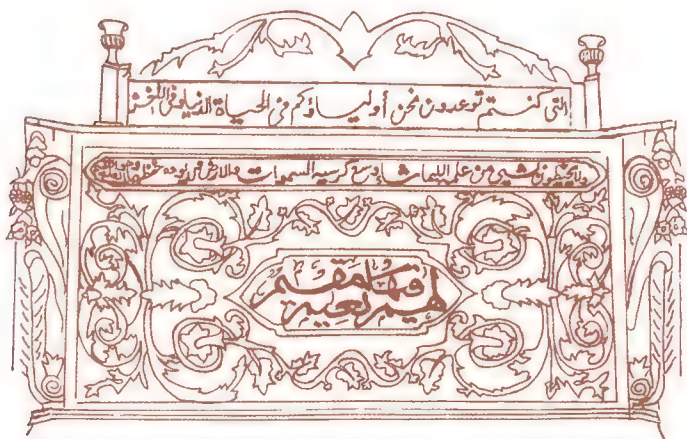 التي كنتم توعدون نحن أولياؤكم في الحياة الدنيا وفي
ولا يحيطون بشيء من علمه إلا بما شاء وسع كرسيه السموات والارض ولا يؤده حفظهما وهو العلي العظيم
فيها نعيم مقيم